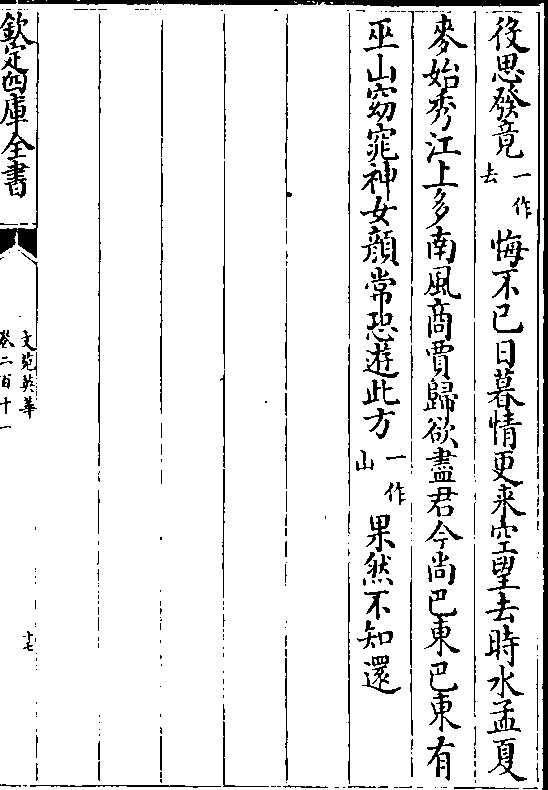 後思發竟一作去悔不已日暮情更来空望去時水孟夏
麥始秀江上多南風商賈歸欲盡君今尚巴東巴東有
巫山窈窕神女顔常恐遊此方一作山果然不知還
欽定四庫全書
文苑英華
卷二百十一
十七